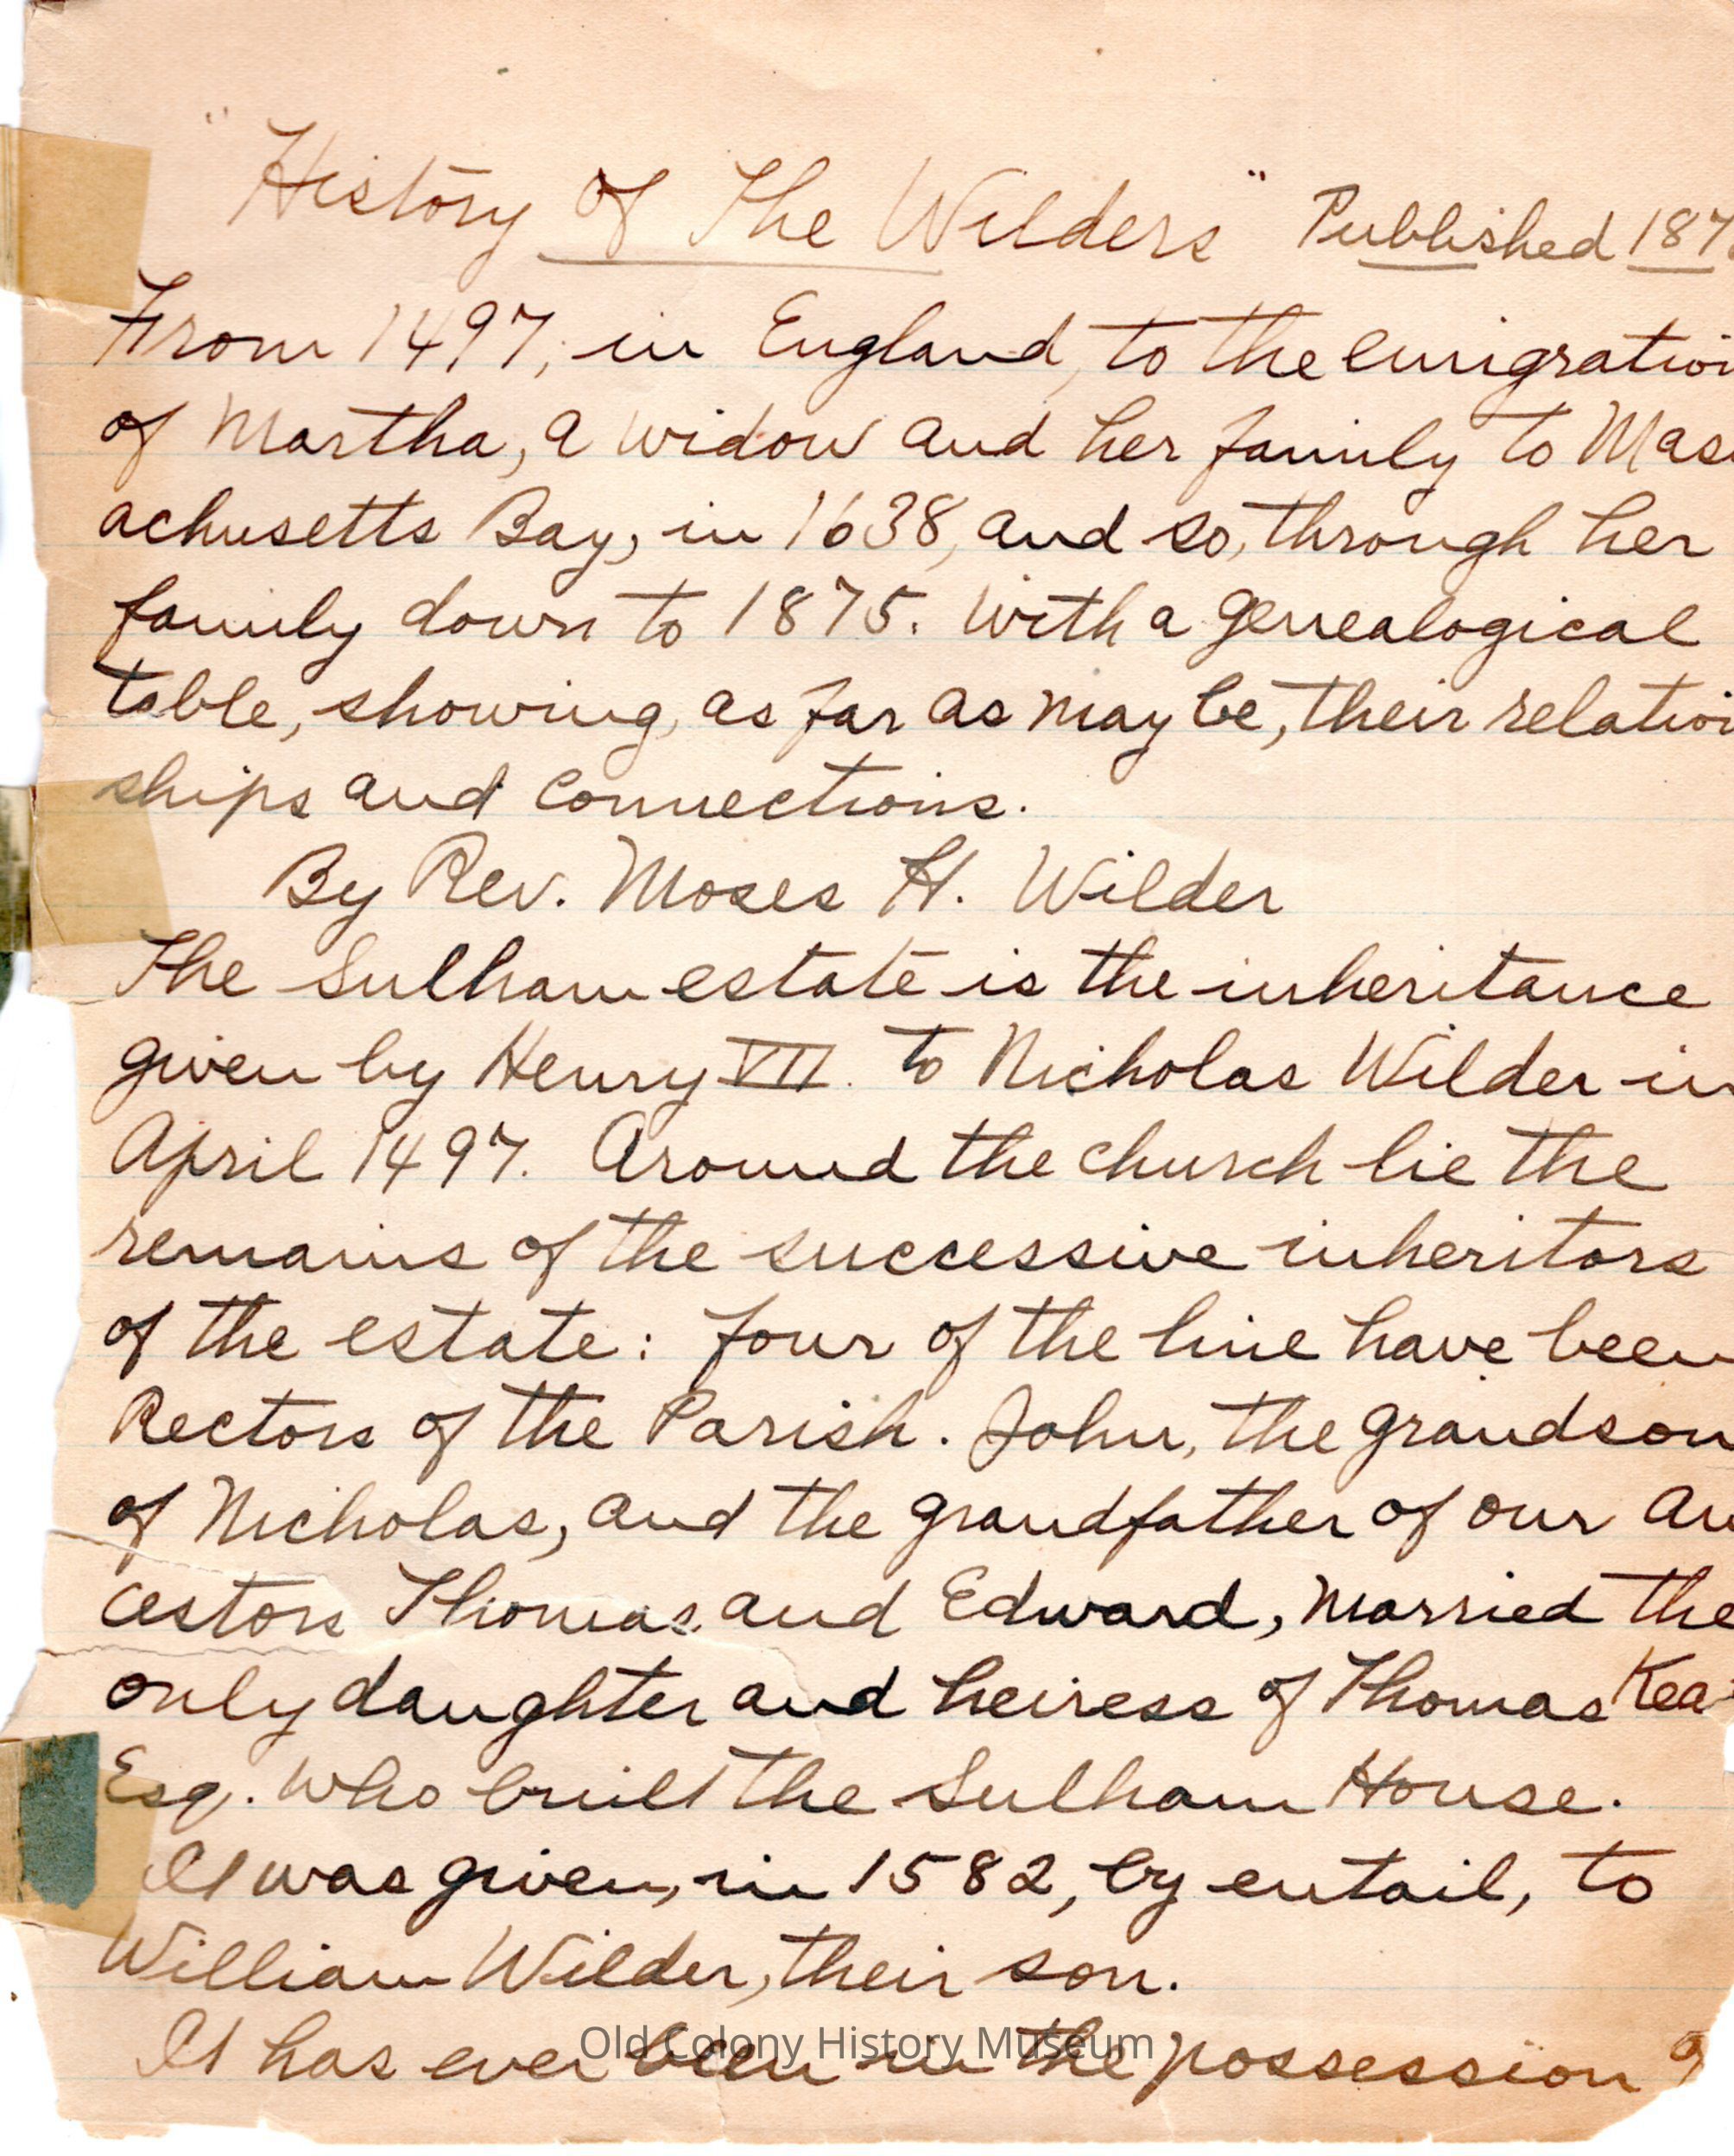 "History of The Wilders" Published 187
From 1497, in England, to the emigration
of Martha, a widow and her family to Mass
achusetts Bay, in 1638, and so, through her
family down to 1875. With a genealogical
table, showing, as far as may be, their relation
ships and connections.
By Rev. Moses H. Wilder
The Sulham estate is the inheritance
given by Henry VII. to Nicholas Wilder in
April 1497. Around the church lie the
remains of the successive inheritors
of the estate: four of the line have been
Rectors of the Parish. John, the grandson
of Nicholas, and the grandfather of our an
cestors Thomas and Edward, married the
only daughter and heiress of Thomas Kea
Esq. who built the Sulham House.
It was given, in 1582, by entail, to
William Wilder, their son.
It has ever been in the possession o
Old Colony History Museum